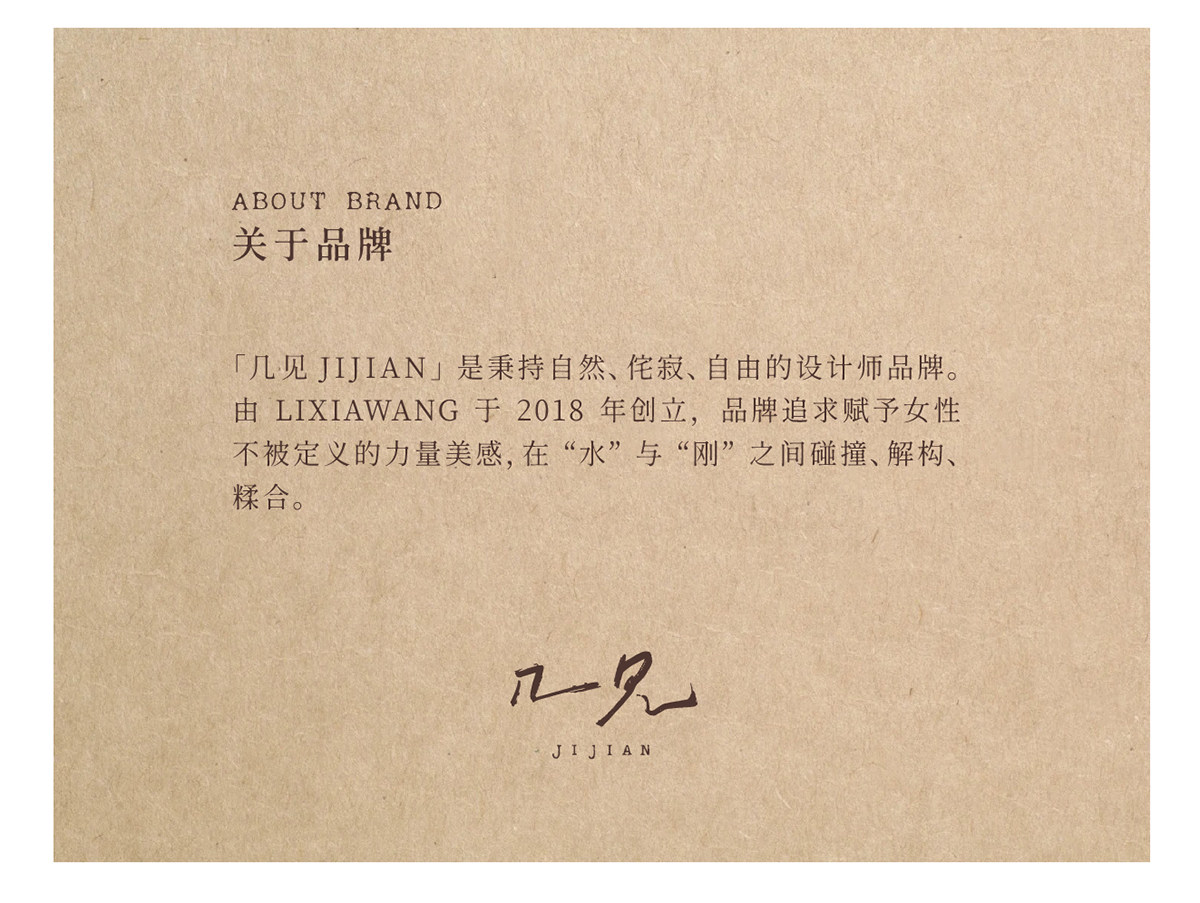 ABOUT BRAND
关于品牌
「几见 JIJIAN」是秉持自然、侘寂、自由的设计师品牌。
由 LIXIAWANG 于 2018 年创立，品牌追求赋予女性
不被定义的力量美感，在“水”与“刚”之间碰撞、解构、
糅合。
几见
JIJIAN